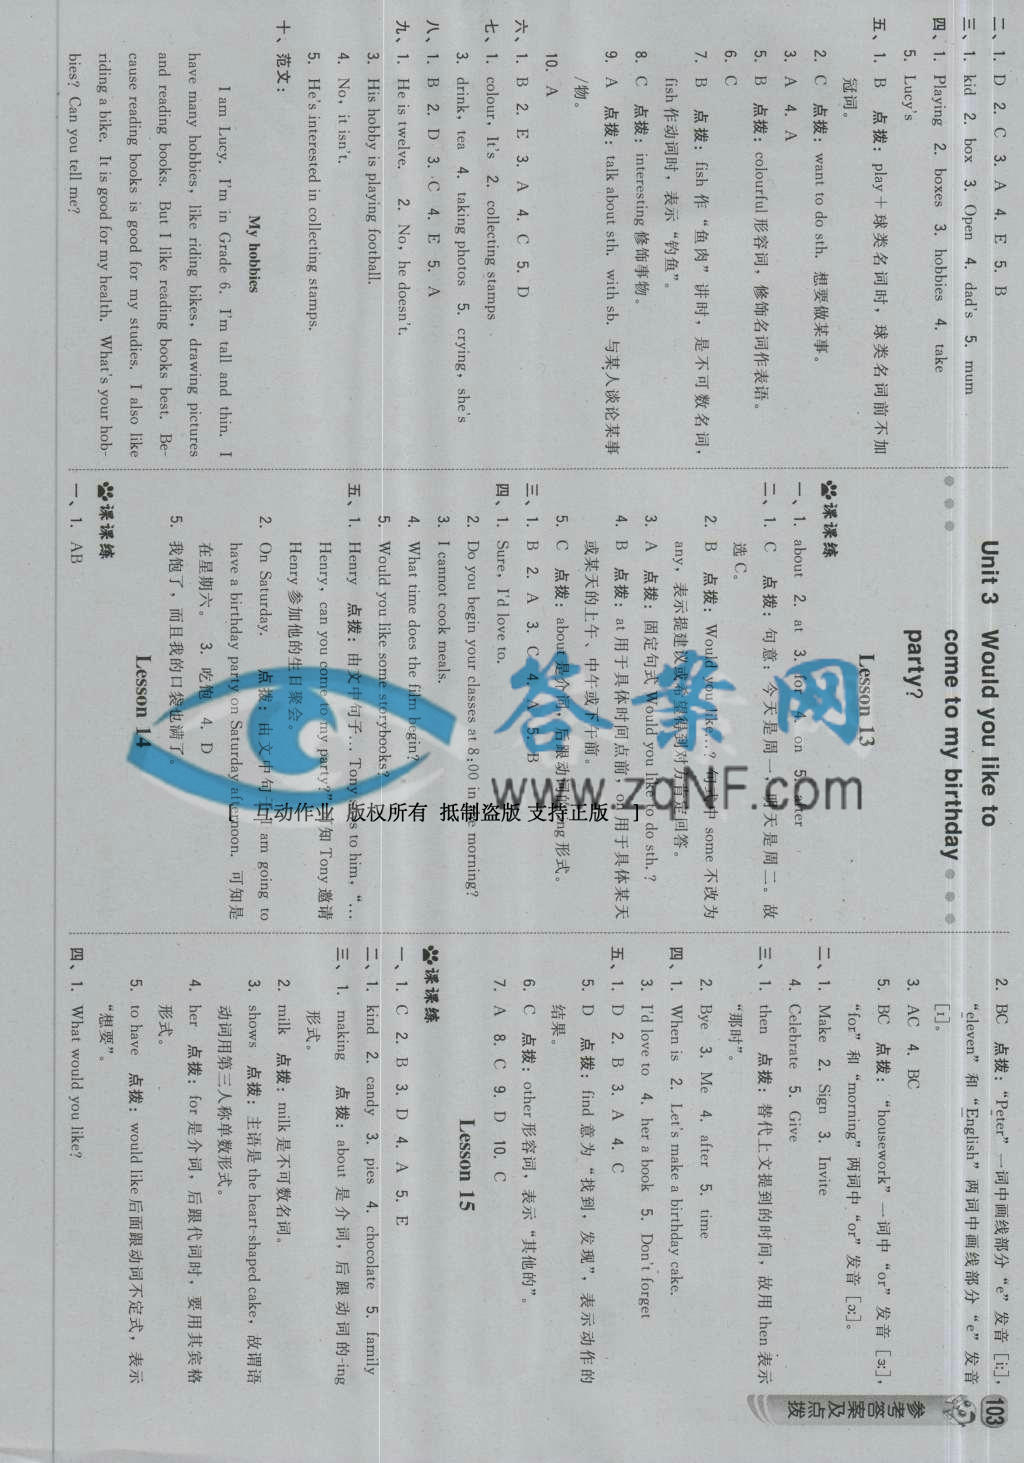 二、1. D 2. C 3. A 4. E 5. B
三、1. kid 2. box 3. Open 4. dad's 5. mum
四、1. Playing 2. boxes 3. hobbies 4. take
5. Lucy's
五、1. B 点拨：play＋球类名词时，球类名词前不加
冠词。
2. C 点拨：want to do sth. 想要做某事。
3. A 4. A
5. B 点拨：colourful 形容词，修饰名词作表语。
6. C
7. B 点拨：fish 作“鱼肉”讲时，是不可数名词，
fish 作动词时，表示“钓鱼”。
8. C 点拨：interesting 修饰事物。
9. A 点拨：talk about sth. with sb. 与某人谈论某事
/物。
10. A
六、1. B 2. E 3. A 4. C 5. D
七、1. colour, It's 2. collecting stamps
3. drink, tea 4. taking photos 5. crying, she's
八、1. B 2. D 3. C 4. E 5. A
九、1. He is twelve. 2. No, he doesn't.
3. His hobby is playing football.
4. No, it isn't.
5. He's interested in collecting stamps.
十、范文：
My hobbies
I am Lucy. I'm in Grade 6. I'm tall and thin. I
have many hobbies, like riding bikes, drawing pictures
and reading books. But I like reading books best. Be-
cause reading books is good for my studies. I also like
riding a bike. It is good for my health. What's your hob-
bies? Can you tell me?
Unit 3 Would you like to
come to my birthday
party?
Lesson 13
课课练
一、1. about 2. at 3. for 4. on 5. after
二、1. C 点拨：句意：今天是周一，明天是周二。故
选 C。
2. B 点拨：Would you like…? 句式中 some 不改为
any，表示提建议或希望得到对方肯定回答。
3. A 点拨：固定句式 Would you like to do sth. ?
4. B 点拨：at 用于具体时间点前，on 用于具体某天
或某天的上午、中午或下午前。
5. C 点拨：about 是介词，后跟动词的-ing 形式。
三、1. B 2. A 3. C 4. A 5. B
四、1. Sure, I'd love to.
2. Do you begin your classes at 8:00 in the morning?
3. I cannot cook meals.
4. What time does the film begin?
5. Would you like some storybooks?
五、1. Henry 点拨：由文中句子… Tony says to him, “…
Henry, can you come to my party?”可知 Tony 邀请
Henry 参加他的生日聚会。
2. On Saturday. 点拨：由文中句子 I am going to
have a birthday party on Saturday afternoon. 可知是
在星期六。 3. 吃饱 4. D
5. 我饱了，而且我的口袋也满了。
Lesson 14
课课练
一、1. AB
2. BC 点拨：“Peter”一词中画线部分“e”发音 [iː]，
“eleven”和“English”两词中画线部分“e”发音
[ɪ]。
3. AC 4. BC
5. BC 点拨：“housework”一词中“or”发音 [ɜː]，
“for”和“morning”两词中“or”发音 [ɔː]。
二、1. Make 2. Sign 3. Invite
4. Celebrate 5. Give
三、1. then 点拨：替代上文提到的时间，故用 then 表示
“那时”。
2. Bye 3. Me 4. after 5. time
四、1. When is 2. Let's make a birthday cake.
3. I'd love to 4. her a book 5. Don't forget
五、1. D 2. B 3. A 4. C
5. D 点拨：find 意为“找到，发现”，表示动作的
结果。
6. C 点拨：other 形容词，表示“其他的”。
7. A 8. C 9. D 10. C
Lesson 15
课课练
一、1. C 2. B 3. D 4. A 5. E
二、1. kind 2. candy 3. pies 4. chocolate 5. family
三、1. making 点拨：about 是介词，后跟动词的-ing
形式。
2. milk 点拨：milk 是不可数名词。
3. shows 点拨：主语是 the heart-shaped cake，故谓语
动词用第三人称单数形式。
4. her 点拨：for 是介词，后跟代词时，要用其宾格
形式。
5. to have 点拨：would like 后面跟动词不定式，表示
“想要”。
四、1. What would you like?
参考答案及点拨
103
答案网
www.zqNF.com
[ 互动作业 版权所有 抵制盗版 支持正版 ]